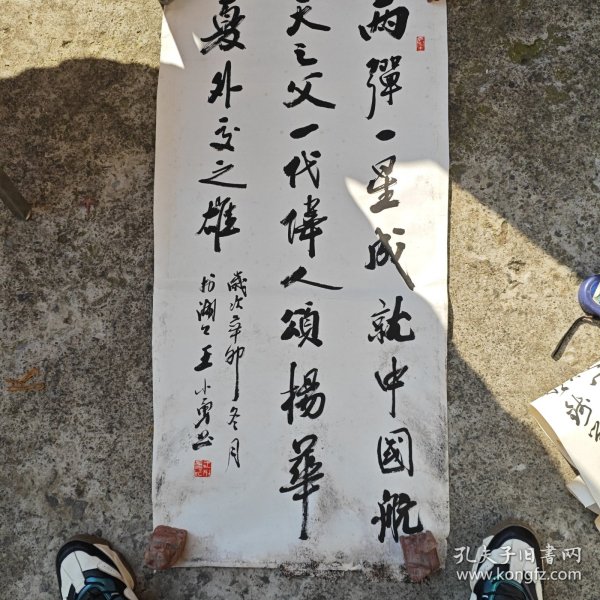 两彈一星成就中國航
天之父一代偉人頌楊華
夏外交之雄
歲次辛卯冬月
王小勇书
孔夫子旧书网
www.kongfz.com